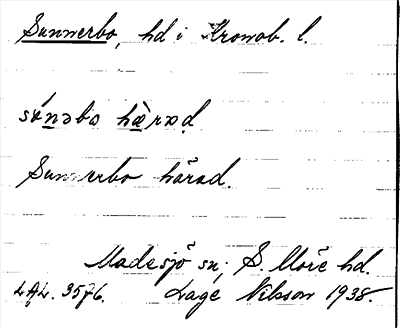 Sunnerbo, hd i Kronob. l.
súnəbo hæ̀rad
Sunnerbo härad.
Madesjö sn; S. Möre hd.
LAL. 3576. Lage Nilsson 1938.